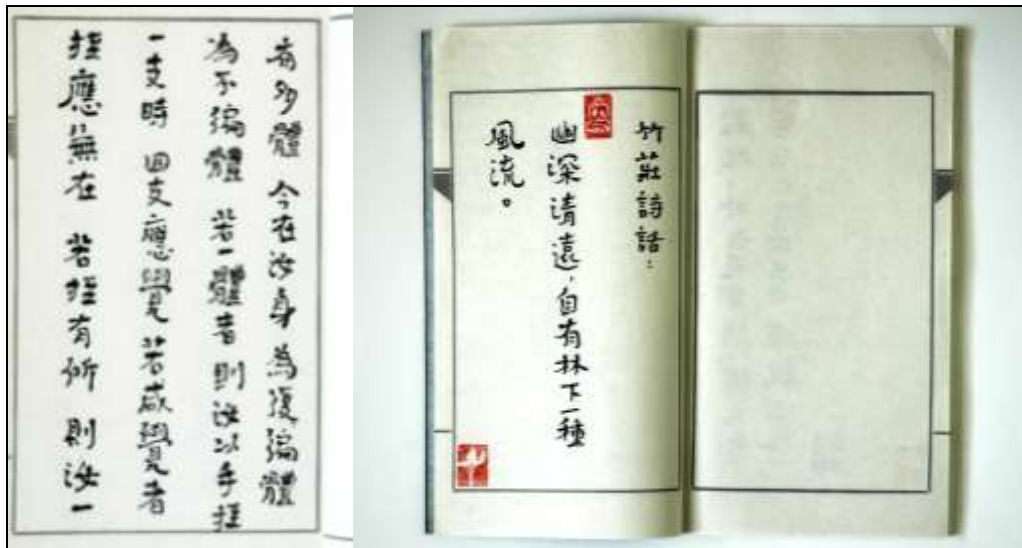 有多體 今在汝身 為復徧體
為不徧體 若一體者 則汝以手挃
一支時 四支應覺 若咸覺者
挃應無在 若挃有所 則汝一
竹莊詩話：
幽深清遠，自有林下一種
風流。